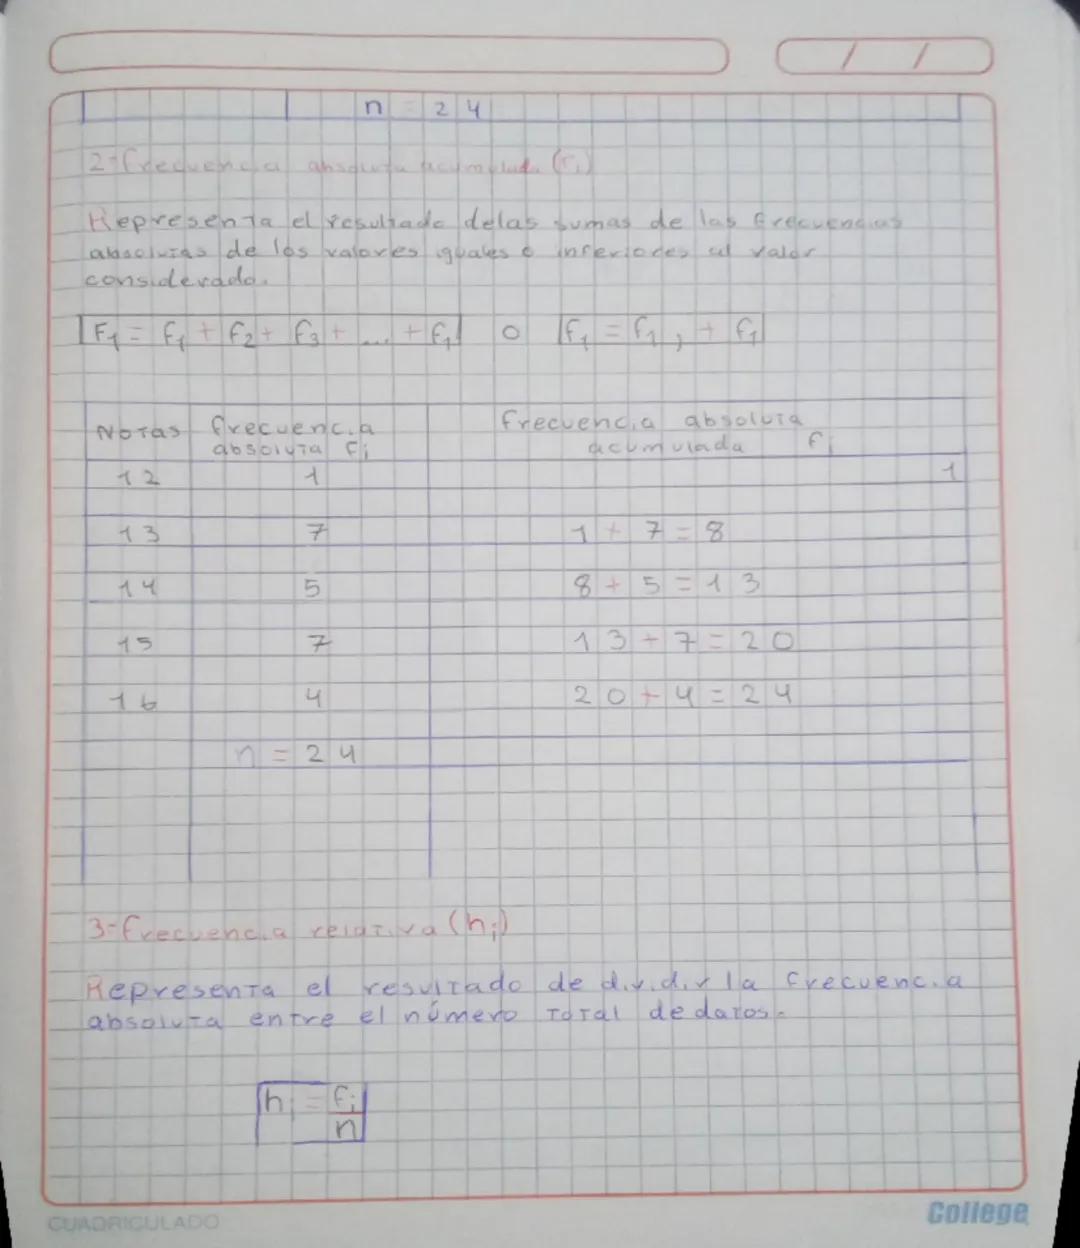 n = 24
2-frecuencia absoluta acumulada (Fi)
Representa el resultado delas sumas de las frecuencias
absolutas de los valores iguales o inferiores al valor
considerado.
F1 = f1 + f2 + f3 + ... + f1 o f1 = f1, + f1
Notas frecuencia absoluta fi frecuencia absoluta acumulada fi
12 1 1
13 7 1 + 7 = 8
14 5 8 + 5 = 13
15 7 13 + 7 = 20
16 4 20 + 4 = 24
n = 24
3-frecuencia relativa (hi)
Representa el resultado de dividir la frecuencia
absoluta entre el número total de datos.
hi = fi
n
CUADRICULADO
College